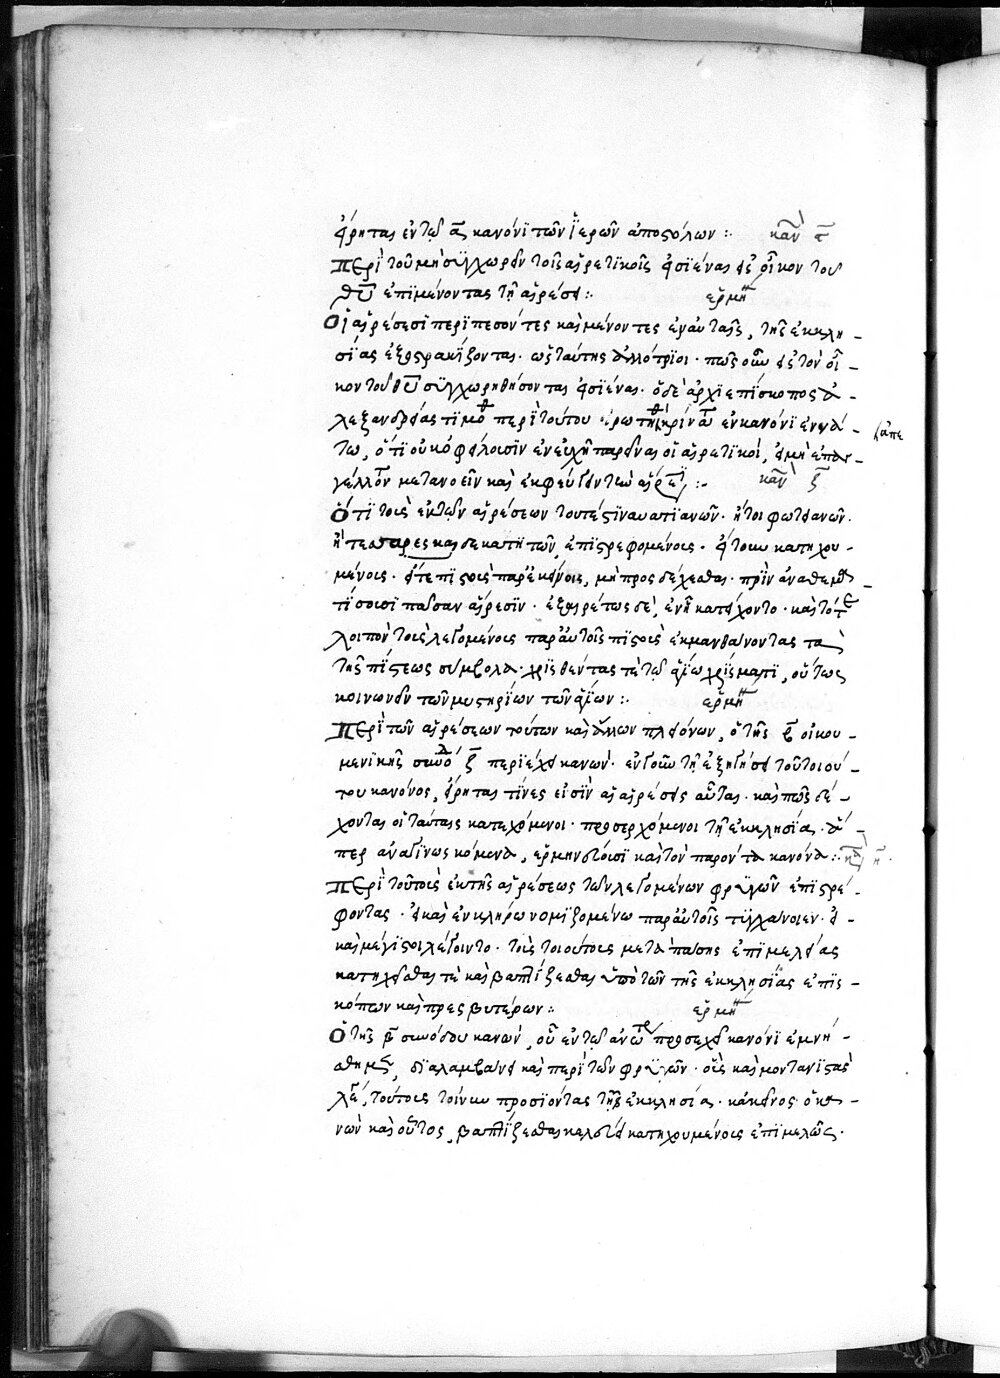 εἴρηται ἐν τῷ α κανόνι τῶν ἱερῶν ἀποστόλων :· καν ϛ
Περὶ τοῦ μὴ συγχωρεῖν τοῖς αἱρετικοῖς εἰσιέναι εἰς οἶκον τοῦ
θυ ἐπιμένοντας τῇ αἱρέσει :· ερμη
Οἱ αἱρέσεσι περιπεσόντες καὶ μένοντες ἐν αὐταῖς, τῆς ἐκκλη-
σίας ἐξοστρακίζονται· ὡς ταύτης ἀλλότριοι· πῶς οὖν εἰς τὸν οἶ-
κον τοῦ θυ συγχωρηθήσονται εἰσιέναι· ὁ δὲ ἀρχιεπίσκοπος ἀ-
λεξανδρείας τιμοθ περὶ τούτου ἐρωτηθ κρίνων ἐν κανόνι ἐννά-
τω, ὅτι οὐκ ὀφείλουσιν ἐν εὐχῇ παρεῖναι οἱ αἱρετικοὶ, εἰ μὴ ἐπαγ-
γέλλον μετανοεῖν καὶ ἐκφεύγειν τὴν αἵρε :· καν ζ
Ὅτι τοὺς ἐκ τῶν αἱρέσεων τουτέστι ναυατιανῶν· ἤτοι φωτεινῶν·
ἢ τεσσαρεσκαιδεκατητῶν, ἐπιστρεφομένους· εἴτουν κατηχου-
μένους· εἴτε πιστοὺς παρ' ἐκείνοις, μὴ προσδέχεσθαι· πρὶν ἀναθεμα
τίσουσι πᾶσαν αἵρεσιν· ἐξαιρέτως δὲ, ἐν ᾗ κατείχοντο· καὶ τότε
λοιπὸν τοὺς λεγομένους παρ' αὐτοῖς πιστοὺς ἐκμανθάνοντας τὰ
τῆς πίστεως σύμβολα· χρισθέντας τὲ τῷ ἁγίω χρίσματι, οὕτως
κοινωνεῖν τῶν μυστηρίων τῶν ἁγίων :· ερμη
Περὶ τῶν αἱρέσεων τούτων καὶ ἄλλων πλειόνων, ὁ τῆς β οἰκου-
μενικῆς συνόδ ζ περιέχει κανών· ἐν γοῦν τῇ ἐξηγήσει τοῦ τοιού-
του κανόνος, εἴρηται τίνες εἰσὶν αἱ αἱρέσεις αὗται· καὶ πῶς δέ-
χονται οἱ ταύταις κατεχόμενοι· προσερχόμενοι τῇ ἐκκλησία· ἅ-
περ ἀναγινωσκόμενα, ἑρμηνεύουσι καὶ τὸν παρόντα κανόνα :· καν η
Περὶ τοῦ τοὺς ἐκ τῆς αἱρέσεως τῶν λεγομένων φρυγῶν ἐπιστρέ-
φοντας· εἰ καὶ ἐν κλήρω νομιζομένω παρ' αὐτοῖς τυγχάνοιεν· εἰ-
καὶ μέγιστοι λέγοιντο· τοὺς τοιούτους μετὰ πάσης ἐπιμελείας
κατηχεῖσθαι τὲ καὶ βαπτίζεσθαι ὑπὸ τῶν τῆς ἐκκλησίας ἐπισ-
κόπων καὶ πρεσβυτέρων :· ερμη
Ὁ τῆς β συνόδου κανὼν, οὗ ἐν τῷ ἀνωτέρ προσεχεῖ κανόνι ἐμνή-
σθημεν, διαλαμβάνει καὶ περὶ τῶν φρυγῶν· οὓς καὶ μοντανιστὰς
λέγ, τούτους τοίνυν προσιόντας τῇ ἐκκλησία· κἀκεῖνος ὁ κα-
νὼν καὶ οὗτος, βαπτίζεσθαι κελεύει κατηχουμένους ἐπιμελῶς·